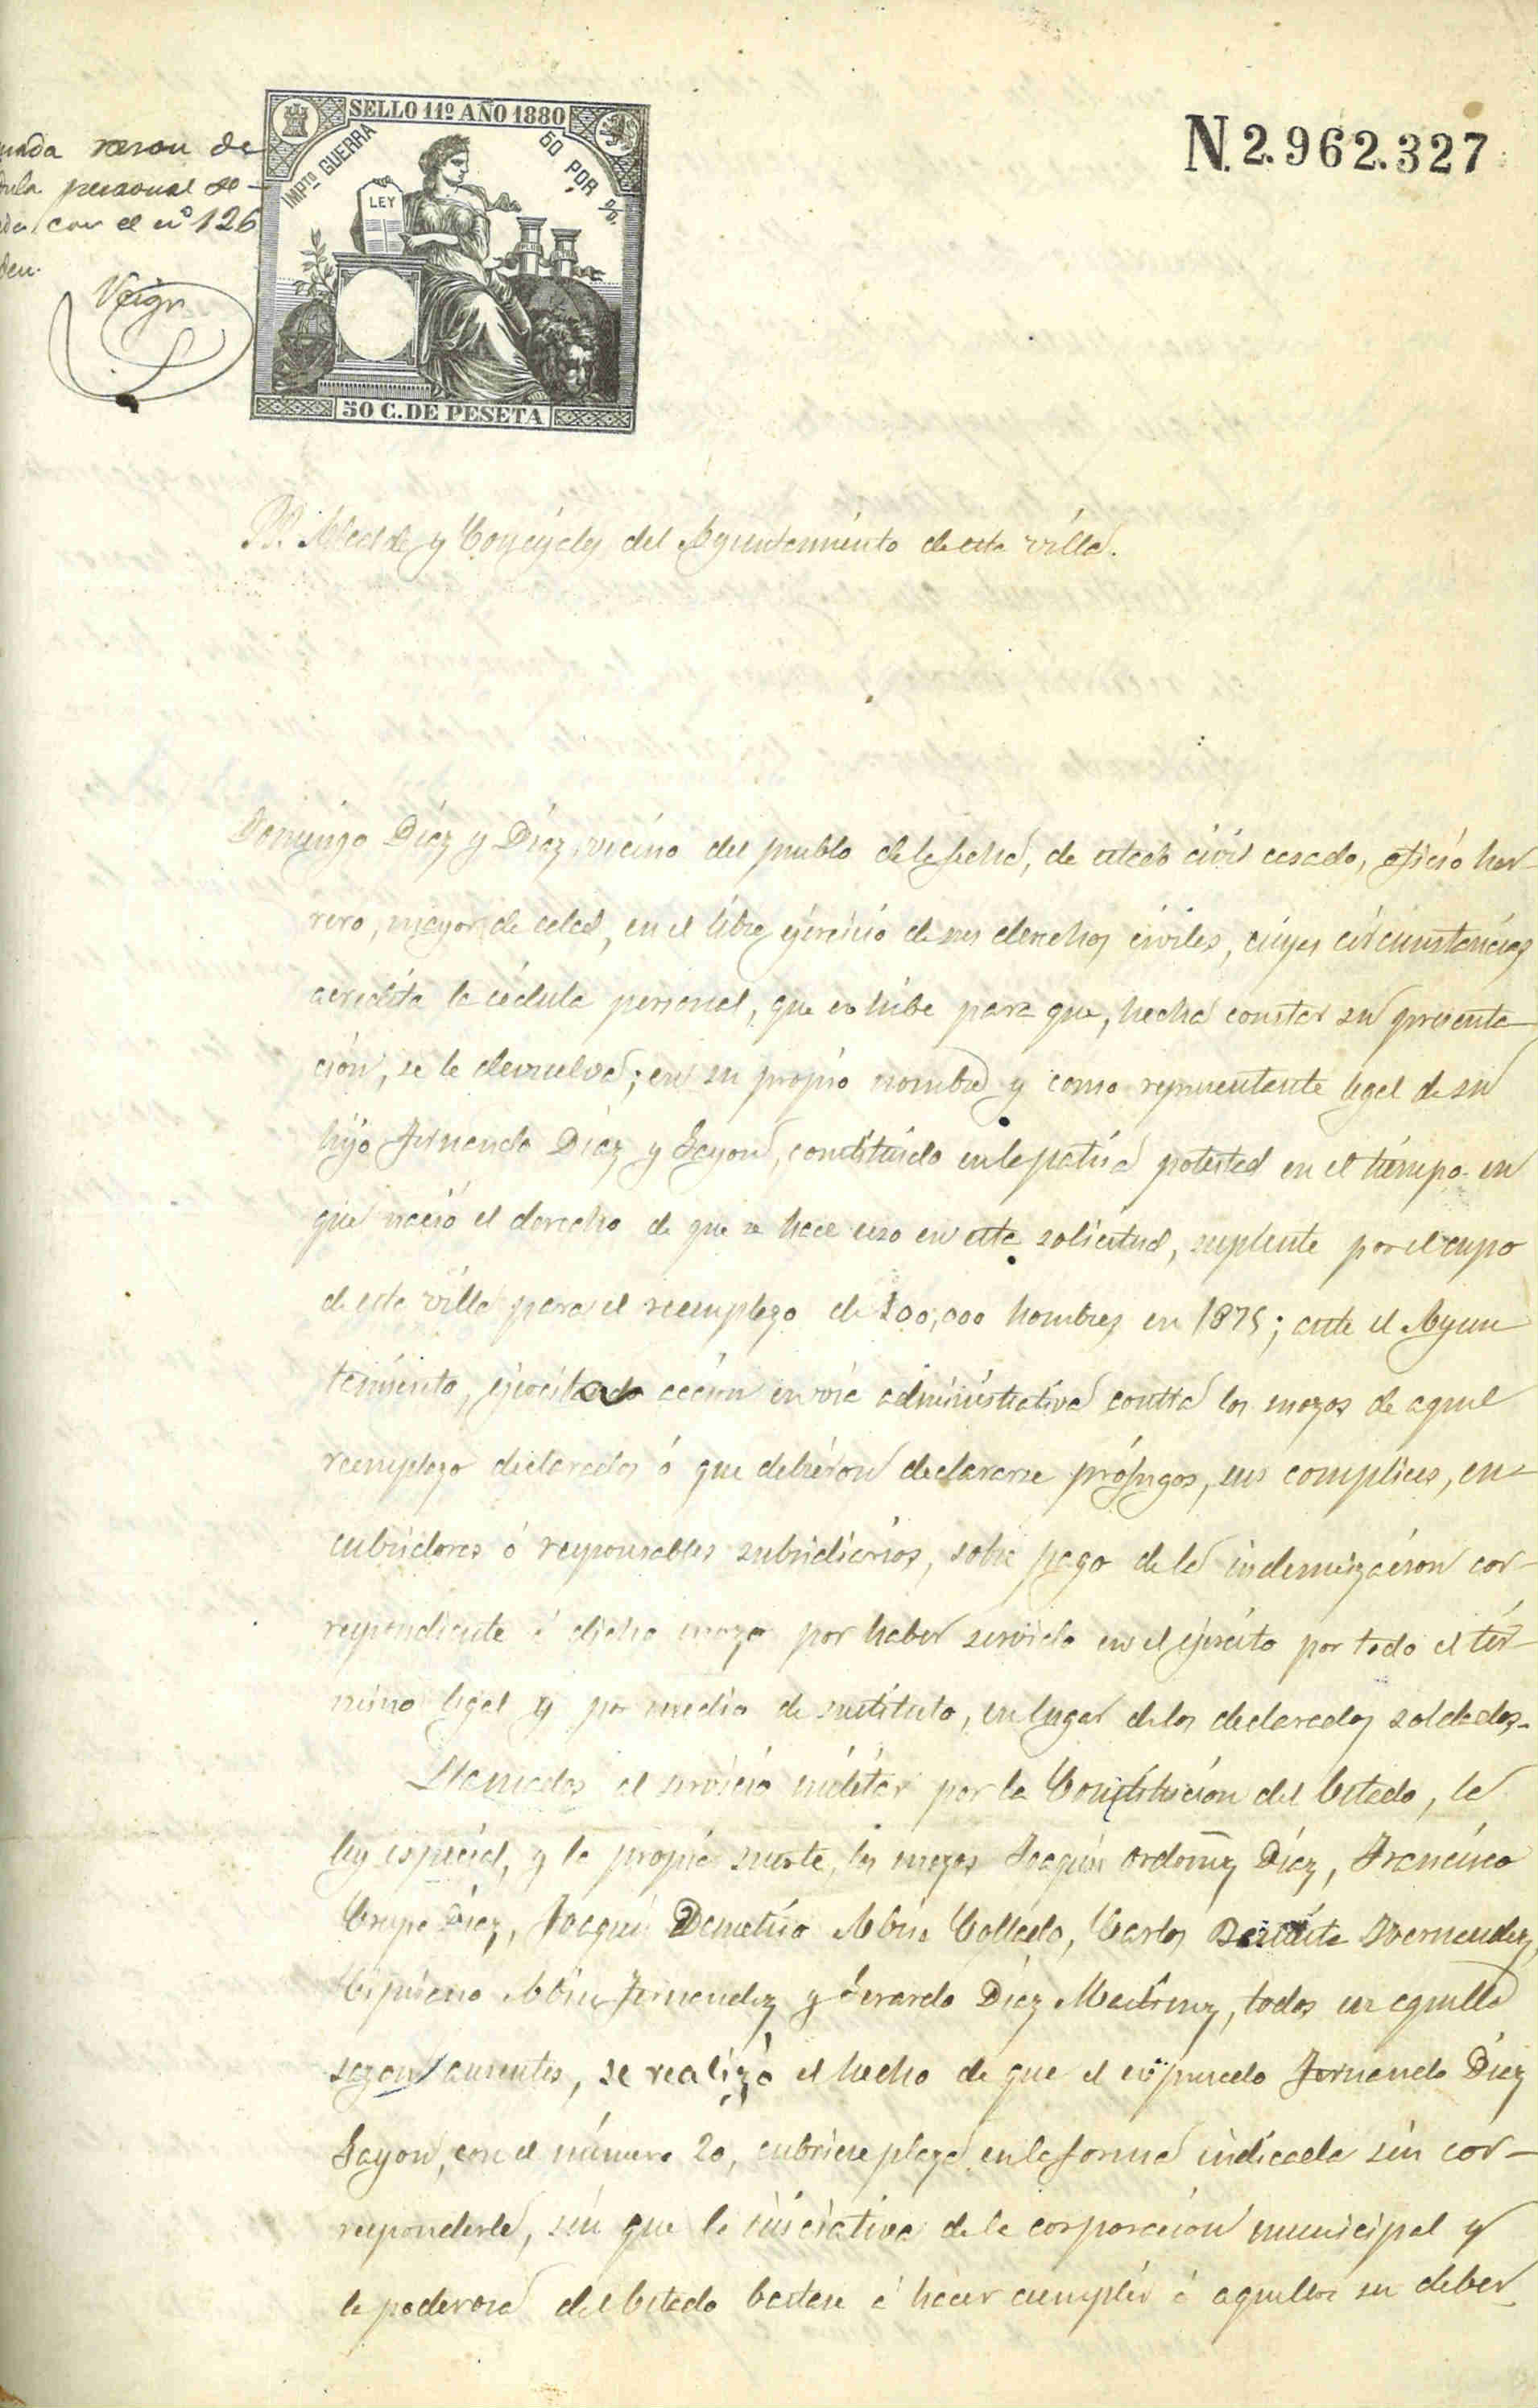 N. 2.962.327
SELLO 11º AÑO 1880
IMPTO GUERRA
60 POR %.
LEY
50 C. DE PESETA
razon de
personal se-
con el nº 126
Veiga
Alcalde y Concejales del Ayuntamiento de esta villa.
Domingo Díaz y Díaz, vecino del pueblo de la fecha, de estado civil casado, oficio her-
rero, mayor de edad, en el libre ejercicio de sus derechos civiles, cuyas circunstancias
acredita la cédula personal, que exhibe para que, hecha constar su presenta-
ción, se le devuelva; en su propio nombre y como representante legal de su
hijo Fernando Díaz y Sayon, constituido en la patria potestad en el tiempo en
que nació el derecho de que se hace uso en esta solicitud, suplente por el cupo
de esta villa para el reemplazo de 100,000 hombres en 1875; ante el Ayun
tamiento, ejercitando acción en vía administrativa contra los mozos de aquel
reemplazo declarados ó que debieron declararse prófugos, sus complices, en-
cubridores ó responsables subsidiarios, sobre pago de la indemnizacion cor-
respondiente á dicho mozo por haber servido en el ejército por todo el tér-
mino legal y por medio de sustituto, en lugar de los declarados soldados.
Llamados al servicio militar por la Constitución del Estado, la
ley especial, y la propia suerte, los mozos Joaquin Ordoñez Díaz, Francisco
Crespo Díaz, Joaquin Demetrio Collado, Carlos Fernandez,
Cipriano Fernandez y Gerardo Díaz Martinez, todos en aquella
sazon ausentes, se realizó el hecho de que el expresado Fernando Díaz
Sayon, con el número 20, cubriese plaza en la forma indicada sin cor-
responderle, sin que la iniciativa de la corporación municipal y
la poderosa del Estado bastase á hacer cumplir á aquellos su deber